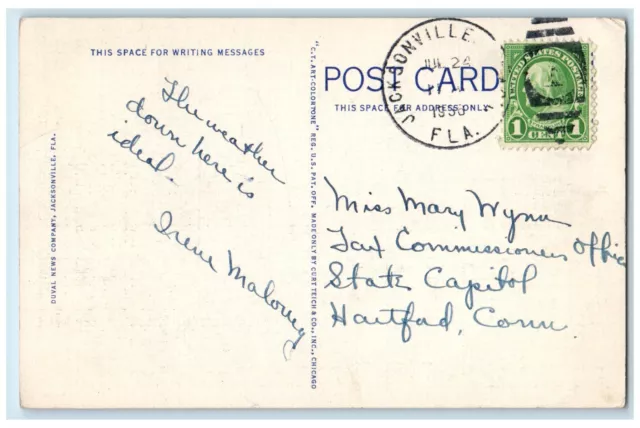 THIS SPACE FOR WRITING MESSAGES
The weather
down here is
ideal.
Irene Maloney
DUVAL NEWS COMPANY, JACKSONVILLE, FLA.
"C.T. ART-COLORTONE" REG. U.S. PAT. OFF. MADE ONLY BY CURT TEICH & CO., INC., CHICAGO
POST CARD
THIS SPACE FOR ADDRESS ONLY
JACKSONVILLE,
FLA.
UNITED STATES POSTAGE
1 CENT 1
Miss Mary Wynn
Tax Commissioners Office
State Capitol
Hartford, Conn.